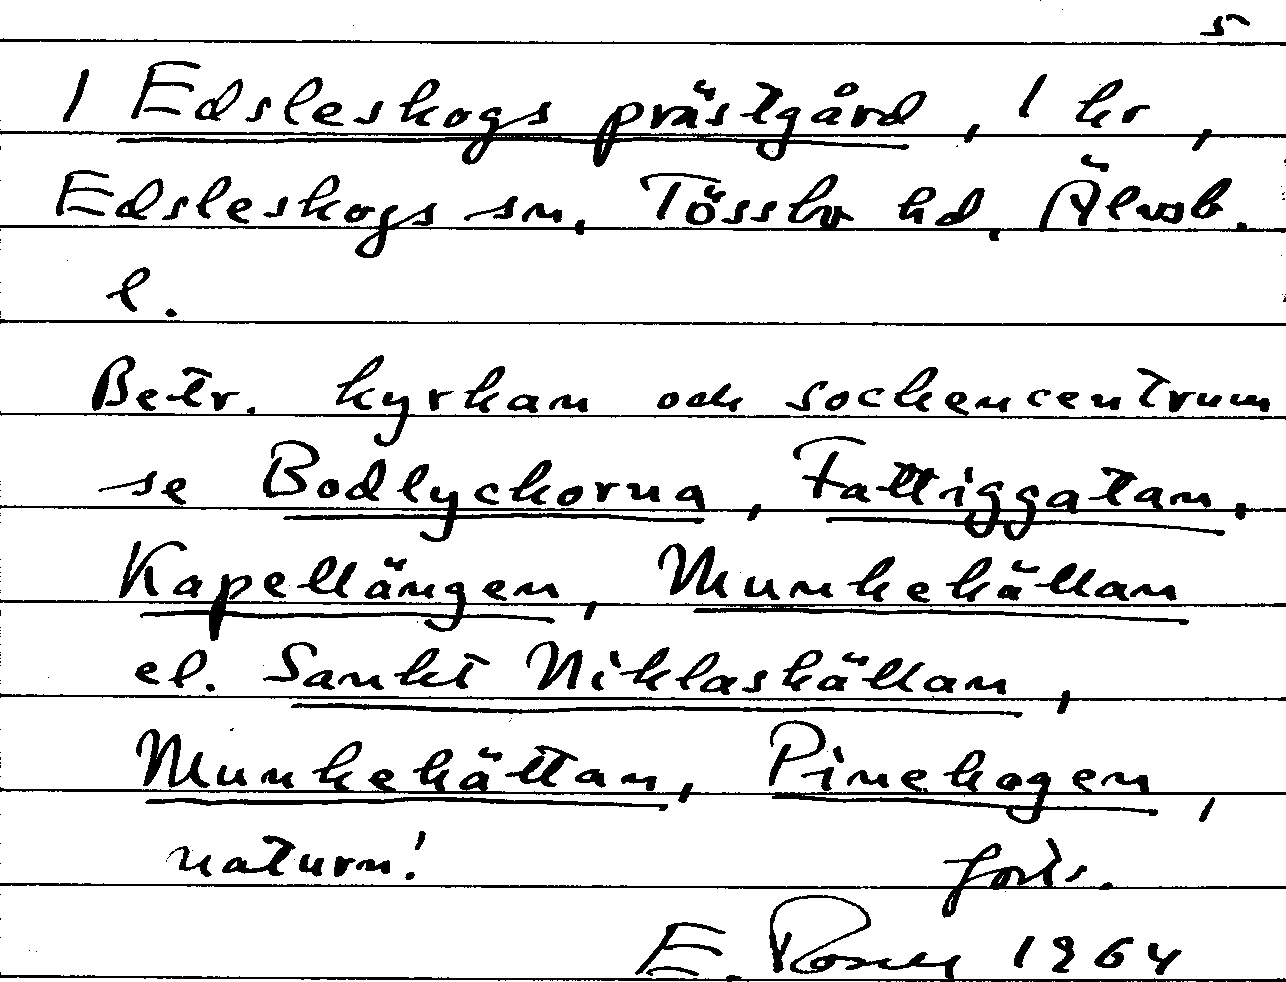 5
1 Edsleskogs prästgård, 1 hr,
Edsleskogs sn, Tössbo hd, Älvsb.
l.
Betr. kyrkan och sockencentrum
se Bodlyckorna, Fattiggatan,
Kapellängen, Munkekällan
el. Sankt Niklaskällan,
Munkekättan, Pinekogen,
naturn! forts.
E. Rosell 1964